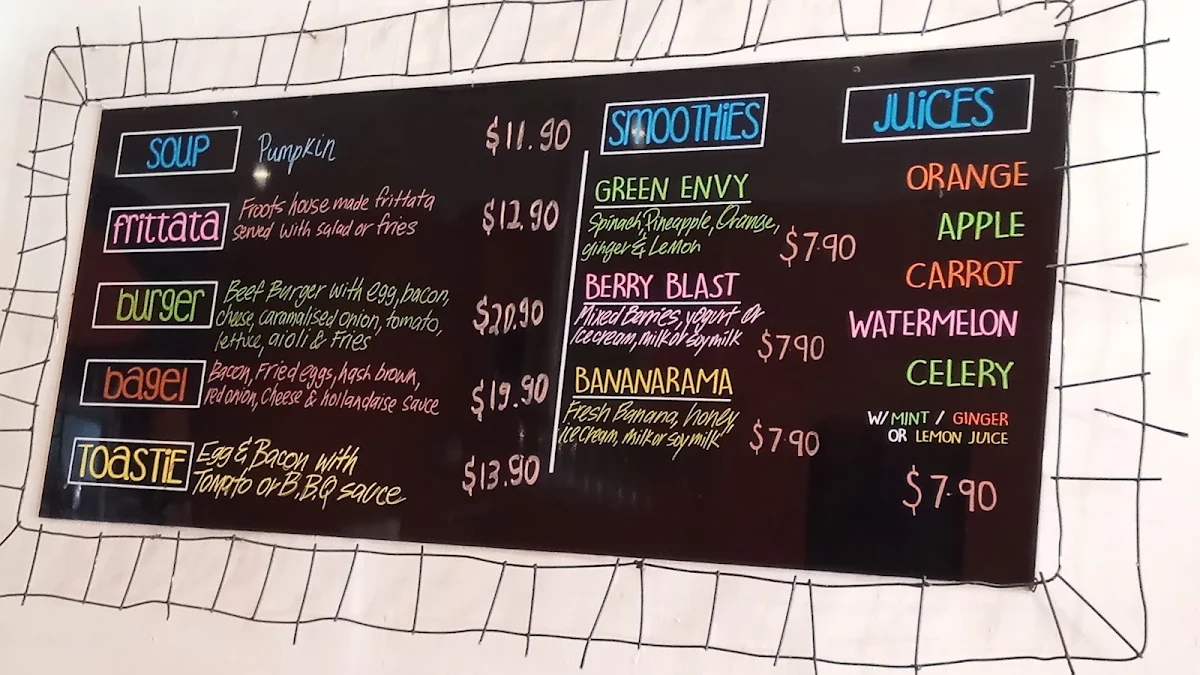 SOUP Pumpkin $11.90
frittata Froots house made frittata
served with salad or fries $12.90
burger Beef Burger with egg, bacon,
cheese, caramalised onion, tomato,
lettuce, aioli & Fries $20.90
bagel Bacon, Fried eggs, hash brown,
red onion, Cheese & hollandaise sauce $19.90
TOASTIE Egg & Bacon with
Tomato or B.B.Q sauce $13.90
SMOOTHIES
GREEN ENVY
Spinach, Pineapple, Orange,
ginger & Lemon $7.90
BERRY BLAST
Mixed Barries, yogurt or
Ice cream, milk or soy milk $7.90
BANANARAMA
Fresh Banana, honey,
Ice cream, milk or soy milk $7.90
JUICES
ORANGE
APPLE
CARROT
WATERMELON
CELERY
W/ MINT / GINGER
OR LEMON JUICE
$7.90